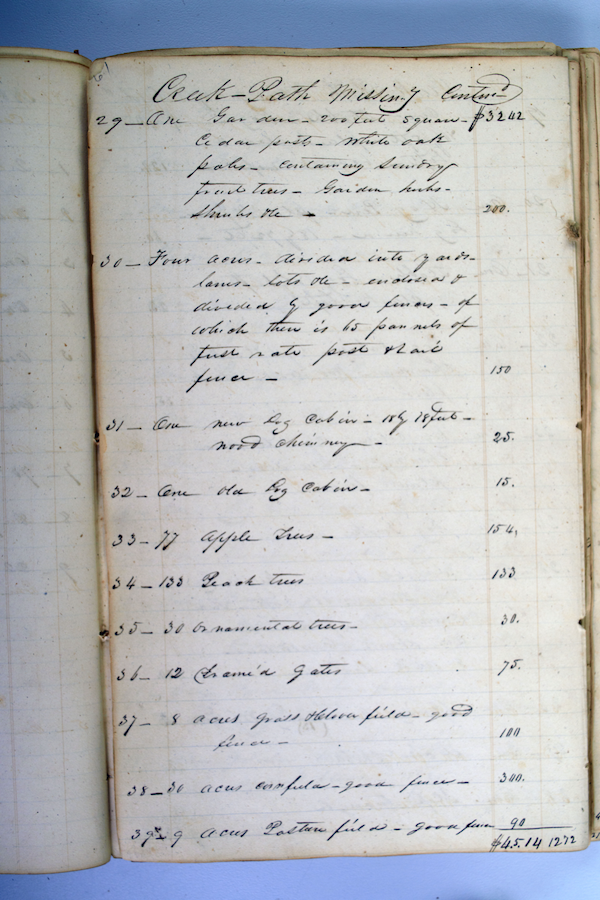 Creek-Path Missing Contind
29 - One Garden - 200 feet square - $3242
Cedar posts - White oak
pales - containing Sundry
fruit trees - Garden herbs -
shrubs &c - 200.
30 - Four acres - divided into yards -
lanes - lots &c - enclosed &
divided by good fences - of
which there is 65 pannels of
first rate post & rail
fence - 150
31 - One new Log Cabin - 18 by 18 feet -
wood chimney - 25.
32 - One old Log Cabin - 15.
33 - 77 Apple Trees - 154.
34 - 133 Peach trees 133
35 - 30 Ornamental trees - 30.
36 - 12 Framed Gates 75.
37 - 8 acres grass & clover field - good
fence - 100
38 - 30 acres cornfield - good fence - 300.
39 - 9 acres Pasture field - good fence 90
$4514 1272